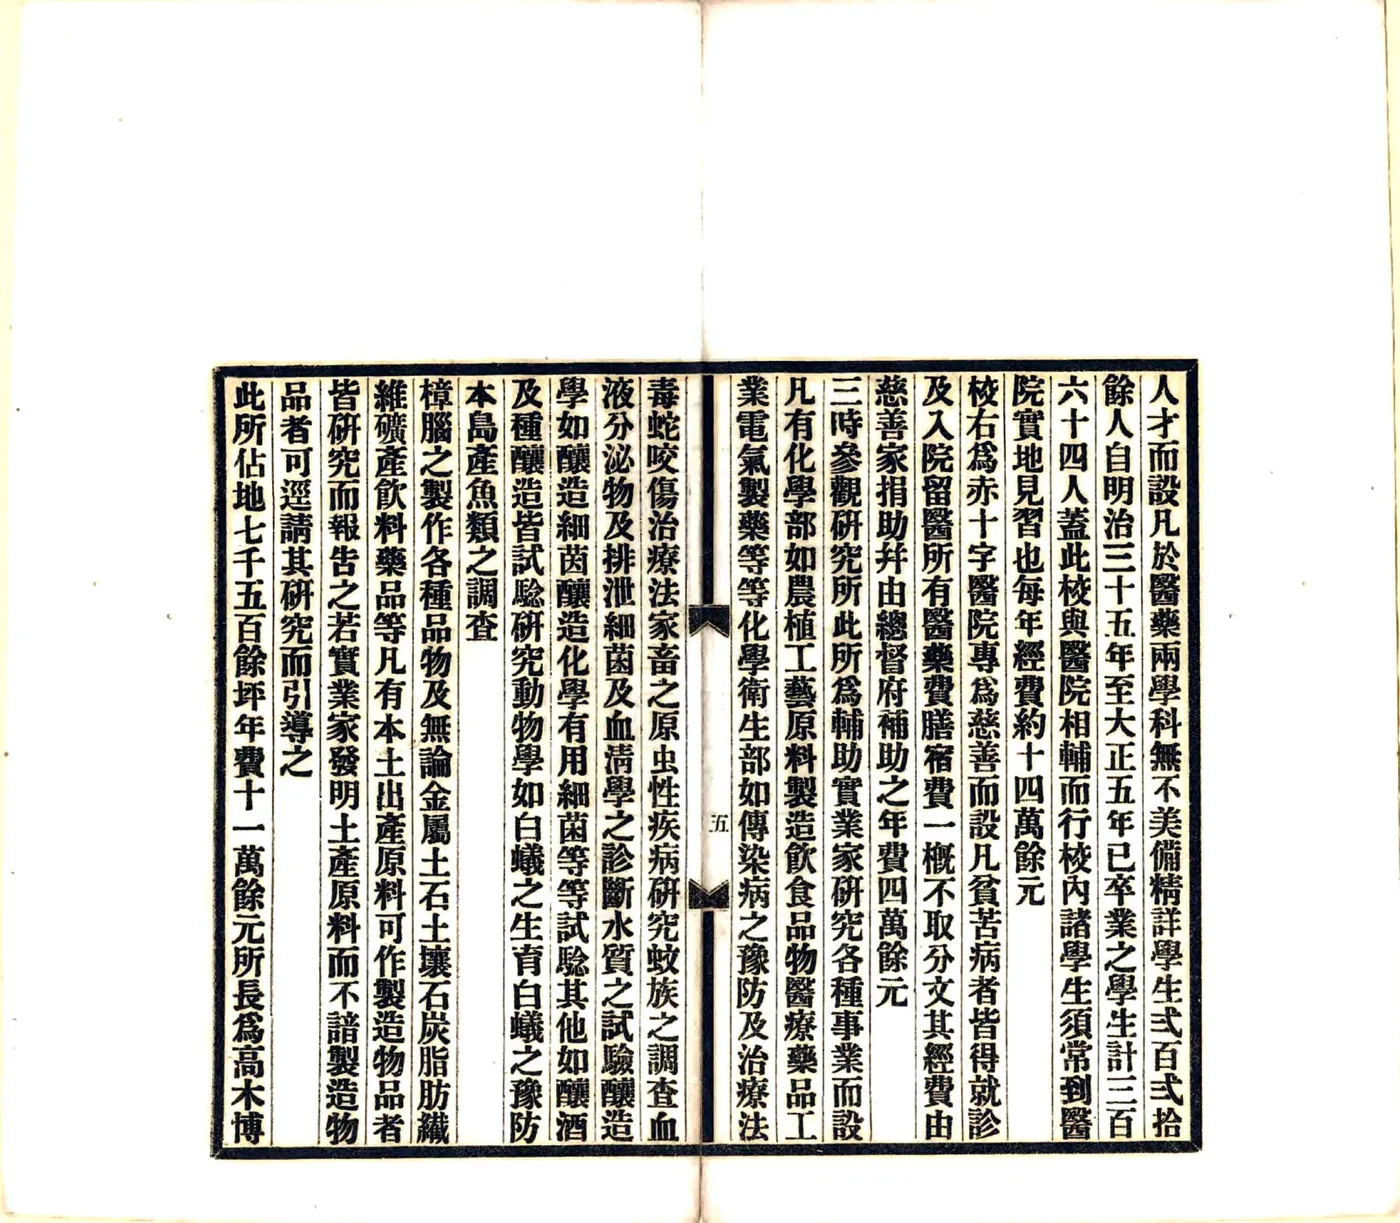 人才而設凡於醫藥兩學科無不美備精詳學生弍百弍拾
餘人自明治三十五年至大正五年已卒業之學生計三百
六十四人蓋此校與醫院相輔而行校內諸學生須常到醫
院實地見習也每年經費約十四萬餘元
校右爲赤十字醫院專爲慈善而設凡貧苦病者皆得就診
及入院留醫所有醫藥費膳宿費一概不取分文其經費由
慈善家捐助并由總督府補助之年費四萬餘元
三時參觀研究所此所爲輔助實業家研究各種事業而設
凡有化學部如農植工藝原料製造飲食品物醫療藥品工
業電氣製藥等等化學衛生部如傳染病之豫防及治療法
五
毒蛇咬傷治療法家畜之原虫性疾病研究蚊族之調查血
液分泌物及排泄細菌及血清學之診斷水質之試驗釀造
學如釀造細茵釀造化學有用細菌等等試驗其他如釀酒
及種釀造皆試驗研究動物學如白蟻之生育白蟻之豫防
本島產魚類之調查
樟腦之製作各種品物及無論金屬土石土壤石炭脂肪纖
維礦產飲料藥品等凡有本土出產原料可作製造物品者
皆研究而報告之若實業家發明土產原料而不諳製造物
品者可逕請其研究而引導之
此所佔地七千五百餘坪年費十一萬餘元所長爲高木博